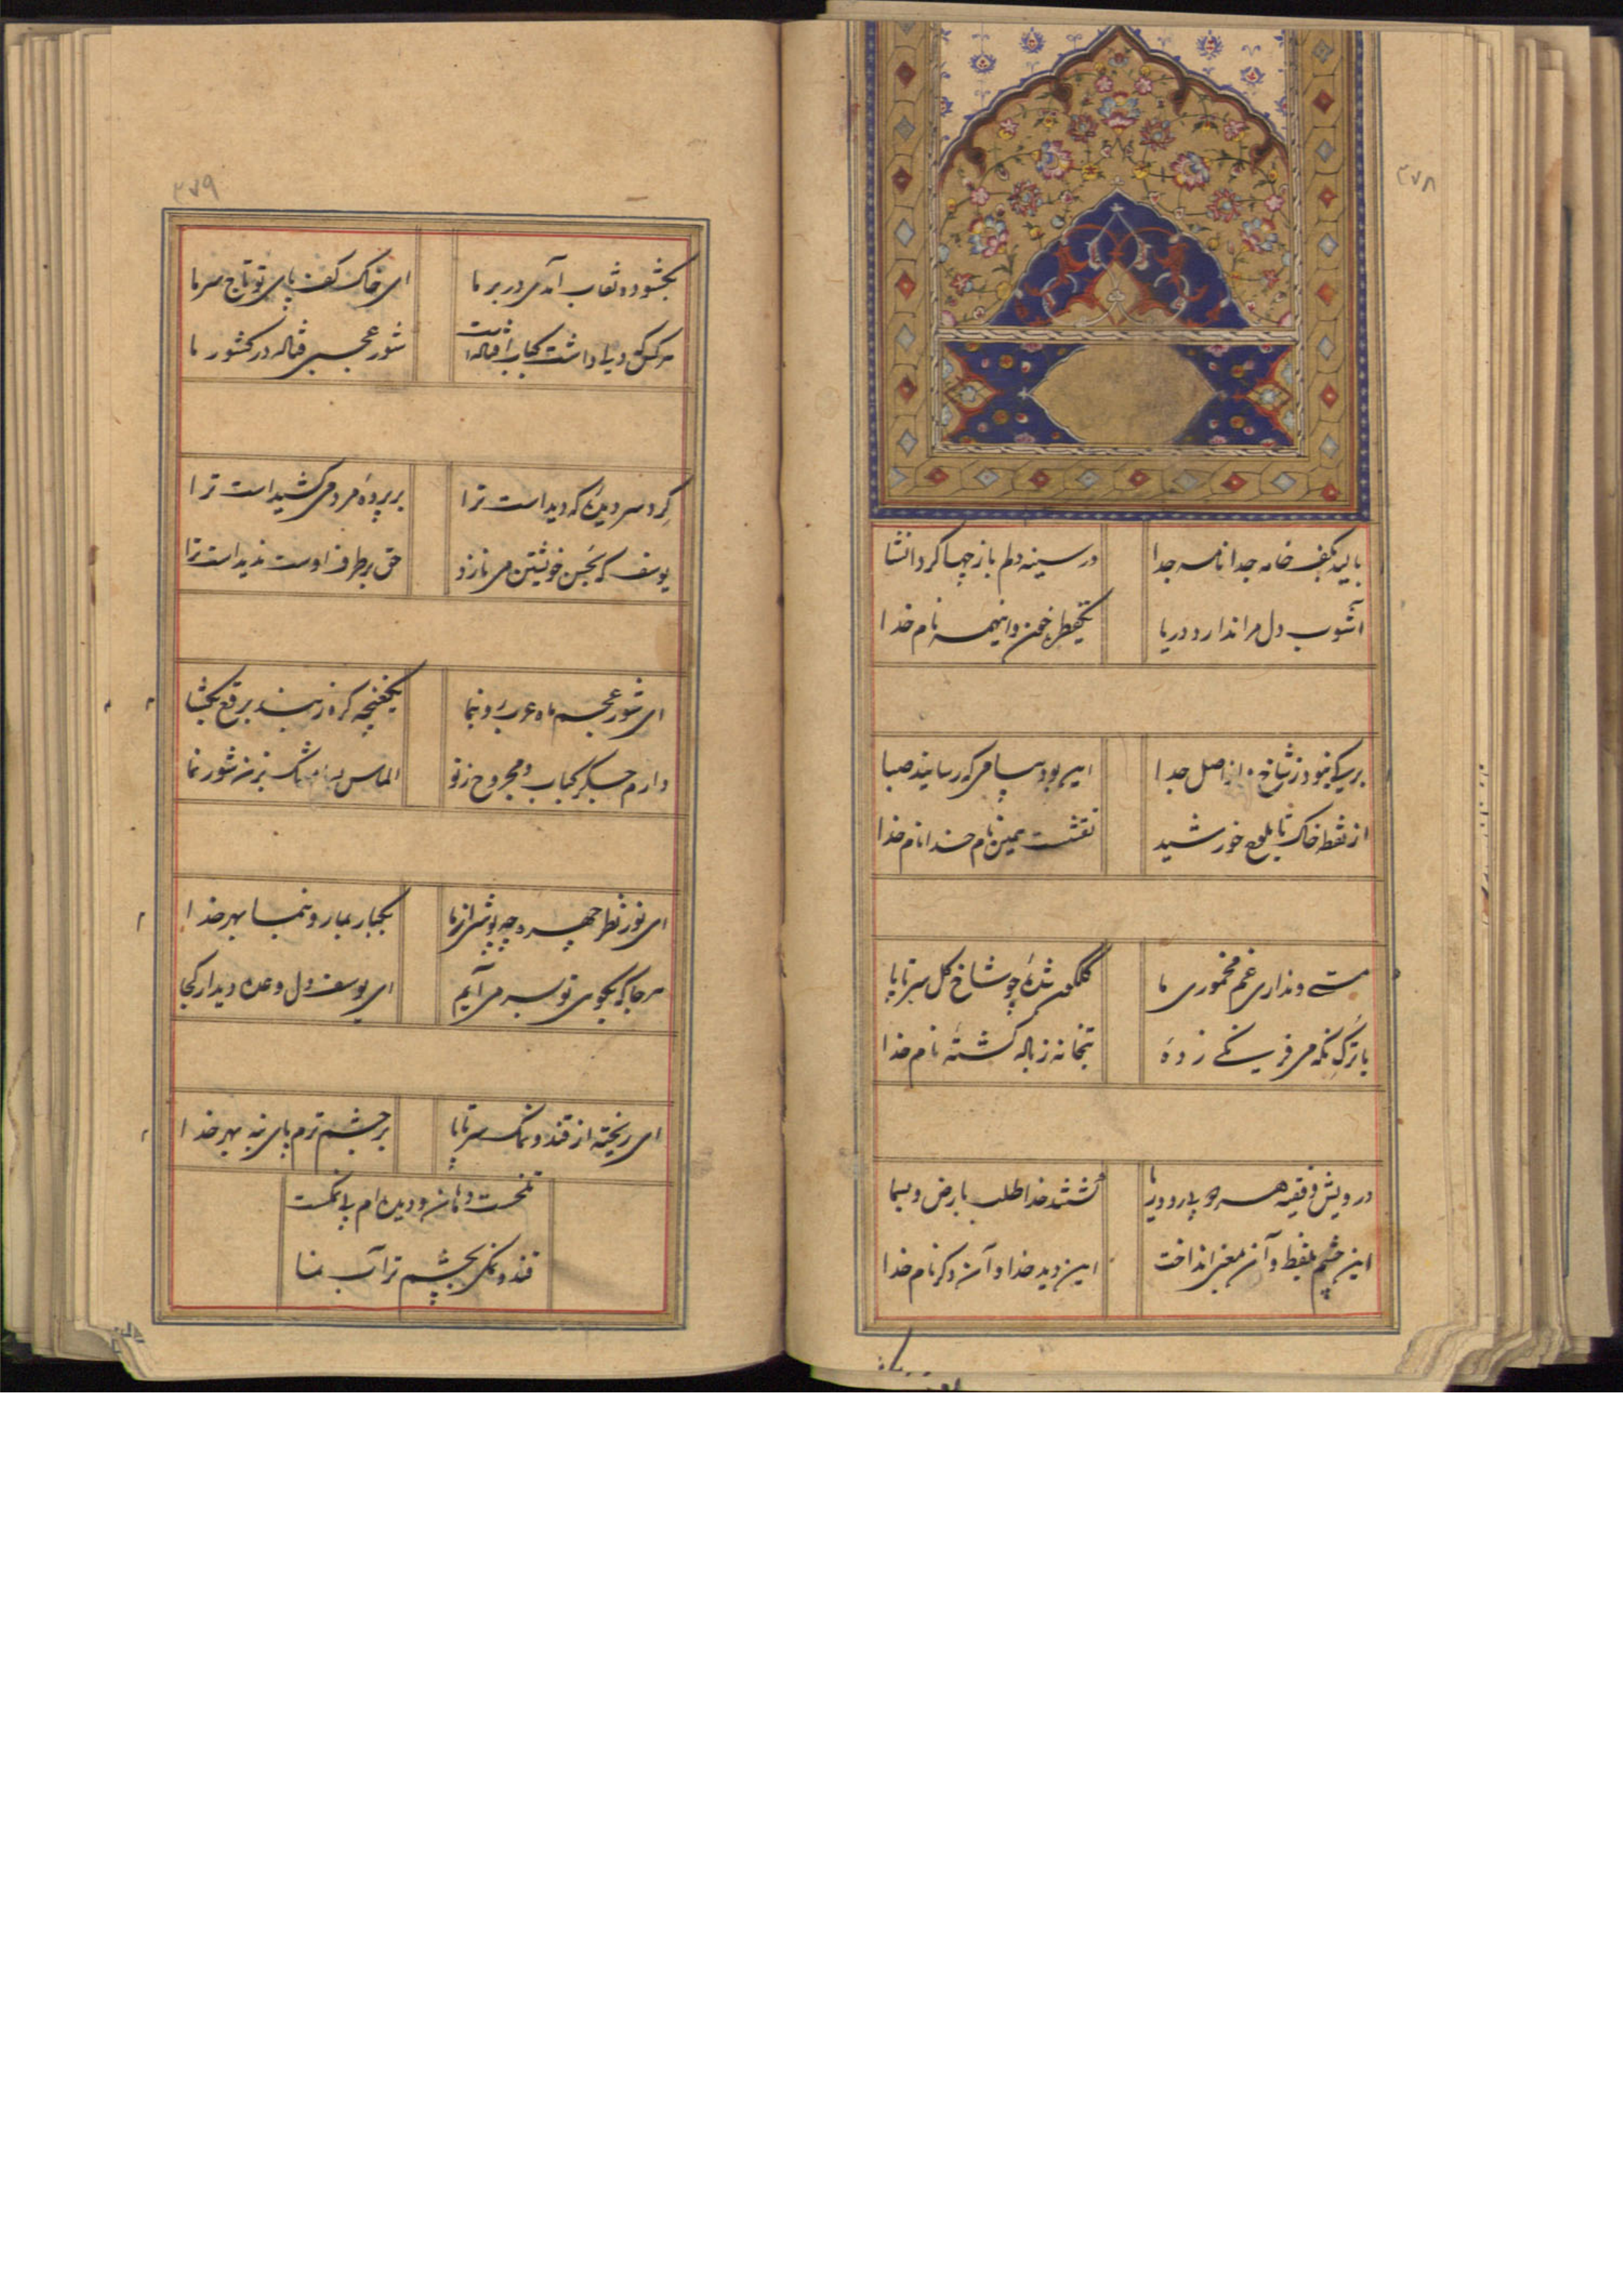 ۳۷۸
بالید بکف خامه جدا نامه جدا در سینه دلم باز چها کرد انشا
آشوب دل مرا ندارد دریا یکقطره خون و اینهمه نام خدا
برگی که نبود ز شاخ و از اصل جدا این بود پیامی که رسانید صبا
از نقطه خاک تا بلوح خورشید نقشست همین نام خدا نام خدا
مستی و نداری غم مخموری ما گلگون شدهٔ چو شاخ گل سر تا پا
با ترک نگه می فرنگی زدهٔ بتخانه ز باله گشتهٔ نام خدا
درویش و فقیه هر دو بی رو و ریا گشتند خدا طلب بارض و بسما
این چشم بلفظ و آن بمعنی انداخت این دید خدا و آن دگر نام خدا
۳۷۹
بگشوده نقاب آمدی در بر ما ای خاک کف پای تو تاج سر ما
هرکس دلی داشت کباب افتاده است شور عجبی فتاده در کشور ما
گرد سر دیدهٔ که دیداست ترا بر پردهٔ مردمی کشیداست ترا
یوسف که بحسن خویشتن می نازد حق بر طرف اوست ندیداست ترا
ای شور عجم ماه عرب رو بنما یکغنچه گره ز بند برقع بگشا
دارم جگر کباب و مجروح ز تو الماس بیار نمک بزن شور نما
ای نور نظر چهره چه پوشی از ما یکبار بیار و بنما بهر خدا
هر جا که بجوی تو بسر می آیم ای یوسف دل وعده دیدار کجا
ای ریخته از قند و نمک سر تا پا بر چشم ترم پای نه بهر خدا
تلخست دهان و دیده ام بی نمکست
قند و نمکی بچشم تر آب نما